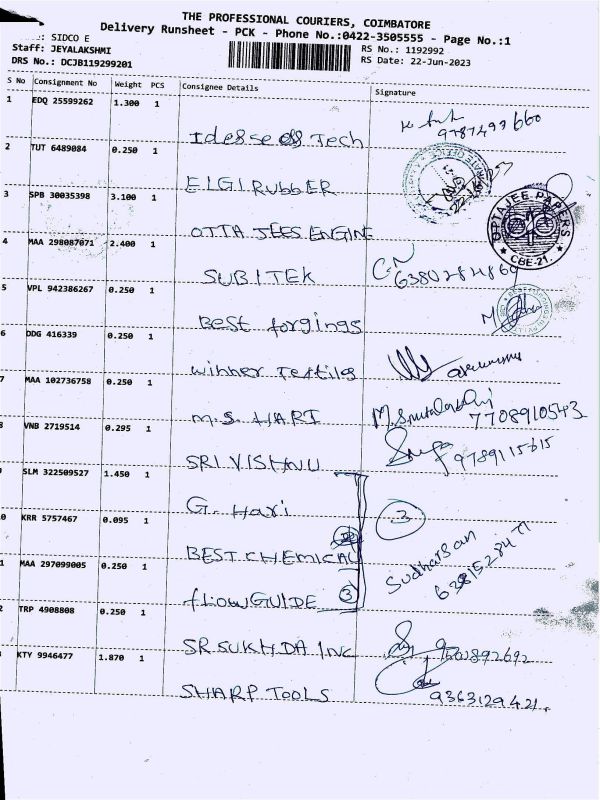 THE PROFESSIONAL COURIERS, COIMBATORE
Delivery Runsheet - PCK - Phone No.:0422-3505555 - Page No.:1
: SIDCO E
RS No.: 1192992
Staff: JEYALAKSHMI
RS Date: 22-Jun-2023
DRS No.: DCJB119299201
S No Consignment No Weight PCS Consignee Details Signature
1 EDQ 25599262 1.300 1
Tech
2 TUT 6489084 0.250 1
ELGI RUBBER
3 SPB 30035398 3.100 1
OTTA JEES ENGINE
OPTAJEE PAPERS
CBE-21.
4 MAA 298087071 2.400 1
SUBITEK
5 VPL 942386267 0.250 1
Best forgings
6 DDG 416339 0.250 1
winner Textiles
7 MAA 102736758 0.250 1
M.S. HARI 7708910543
8 VNB 2719514 0.295 1
SRI VISHNU
SLM 322509527 1.450 1
G. Hari 3
0 KRR 5757467 0.095 1
BEST CHEMICAL
Sudharsan
1 MAA 297099005 0.250 1
flow GUIDE 3
2 TRP 4908808 0.250 1
SR SUKHDA INC
KTY 9946477 1.870 1
SHARP TOOLS 9363129421